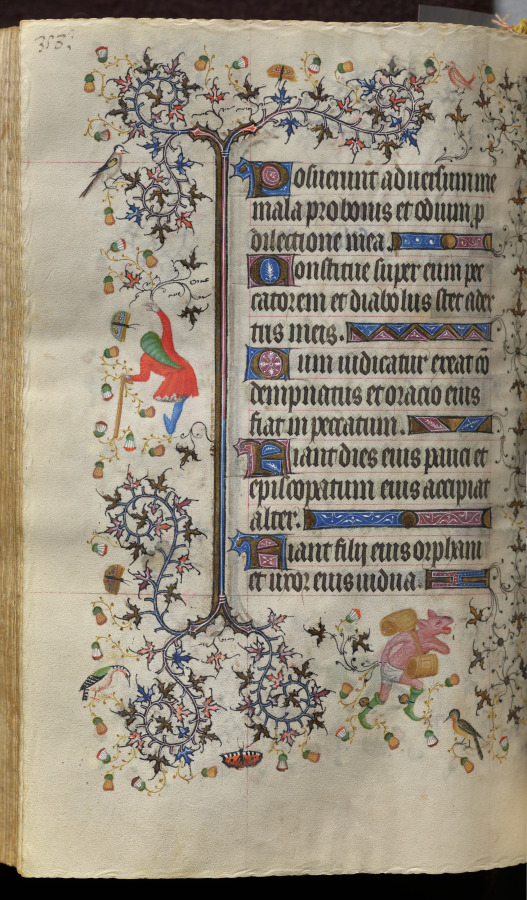 313
Posuerunt aduersum me
mala pro bonis et odium p
dilectione mea.
Constitue super eum pec
catorem et diabolus stet adex
tris meis.
Cum iudicatur exeat co͂
dempnatus et oracio eius
fiat in peccatum.
Fiant dies eius pauci et
episcopatum eius accipiat
alter.
Fiant filij eius orphani
et uxor eius uidua.